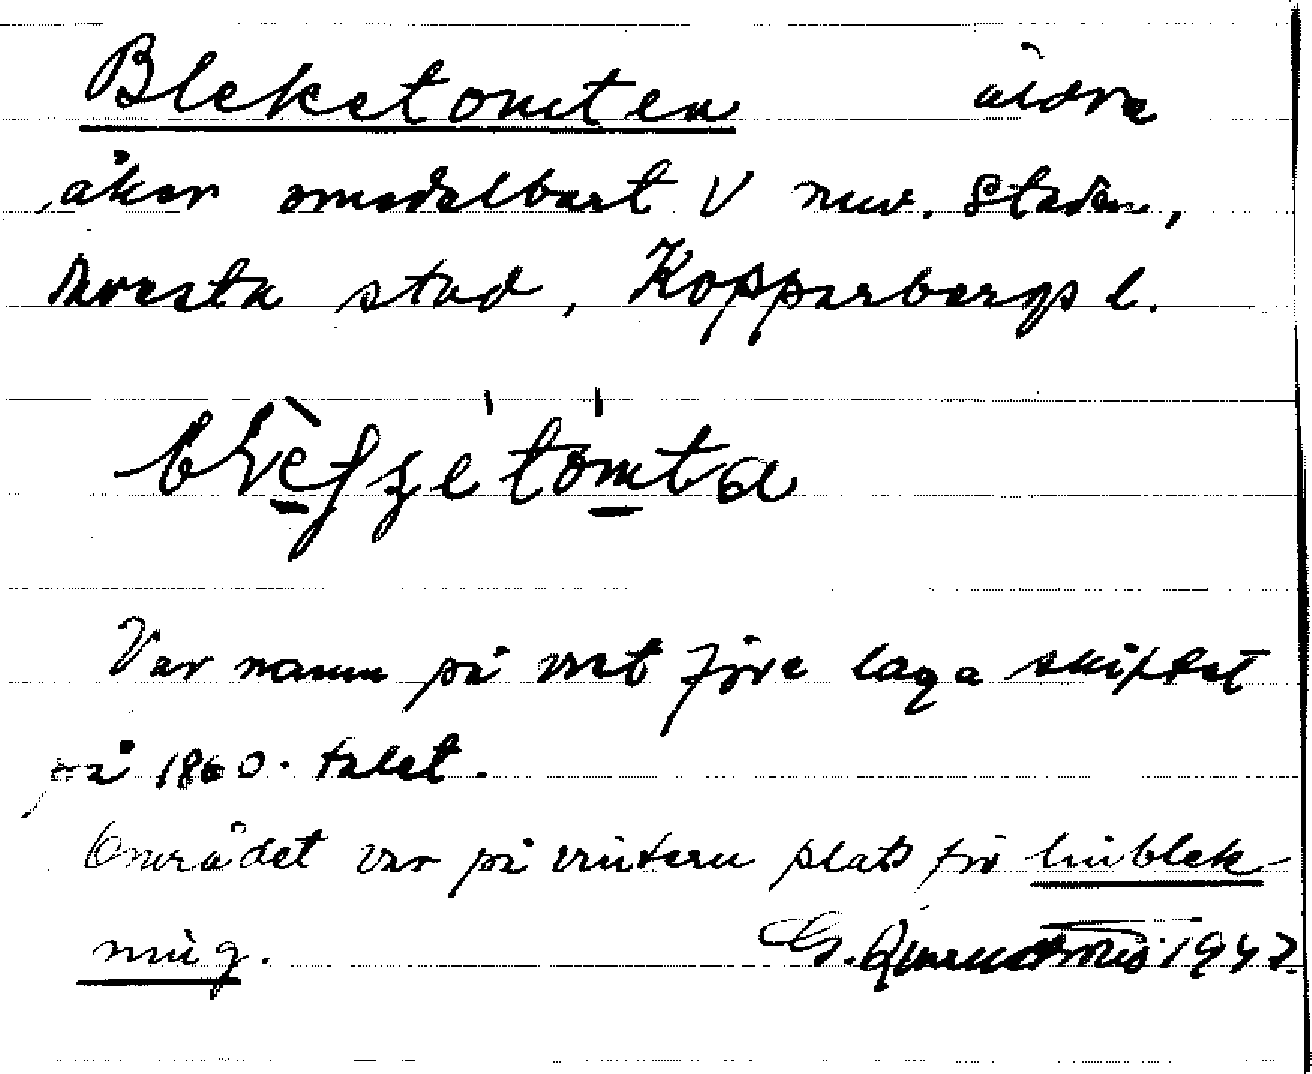 Bleketomten äldre
åker omedelbart V nuv. Staden,
Avesta stad, Kopparbergs l.
Var namn på vret före laga skiftet
på 1860-talet.
Området var på vintern plats för linblek-
ning. G.